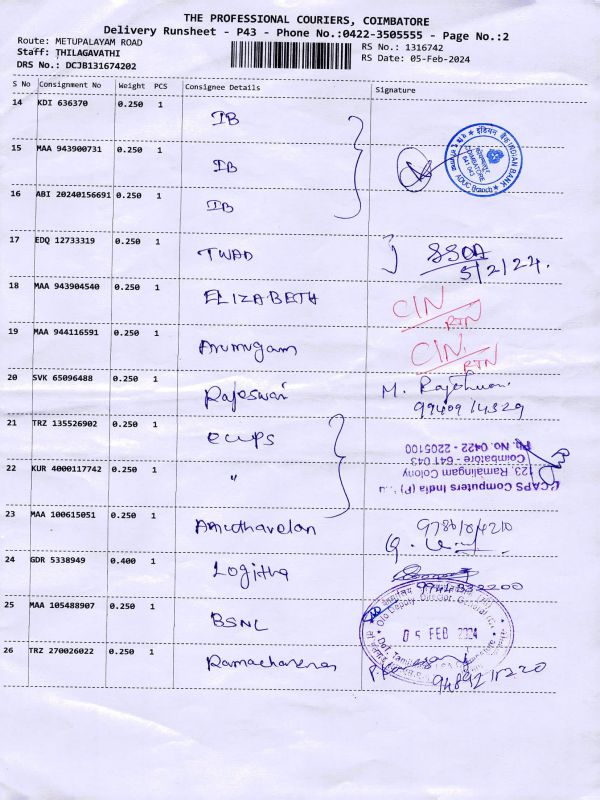 THE PROFESSIONAL COURIERS, COIMBATORE
Delivery Runsheet - P43 - Phone No.:0422-3505555 - Page No.:2
Route: METUPALAYAM ROAD
Staff: THILAGAVATHI
DRS No.: DCJB131674202
RS No.: 1316742
RS Date: 05-Feb-2024
S No Consignment No Weight PCS Consignee Details Signature
14 KDI 636370 0.250 1 IB
15 MAA 943900731 0.250 1 IB
16 ABI 20240156691 0.250 1 IB
इंडियन बैंक INDIAN BANK
COIMBATORE
641 043
ADUC Branch
17 EDQ 12733319 0.250 1 TWAD
5/2/24.
18 MAA 943904540 0.250 1 ELIZABETH CIN/RTN
19 MAA 944116591 0.250 1 Arumugam CIN/RTN
20 SVK 65096488 0.250 1 Rajeswari M. Rajeswari
21 TRZ 135526902 0.250 1
22 KUR 4000117742 0.250 1 "
CCAPS Computers India (P)
123, Ramalingam Colony
Coimbatore - 641 043
Ph. No. 0422 - 2205100
23 MAA 100615051 0.250 1 Amuthavelan
24 GDR 5338949 0.400 1 Logitha
25 MAA 105488907 0.250 1 BSNL
O/o Deputy Director General
05 FEB 2024
26 TRZ 270026022 0.250 1